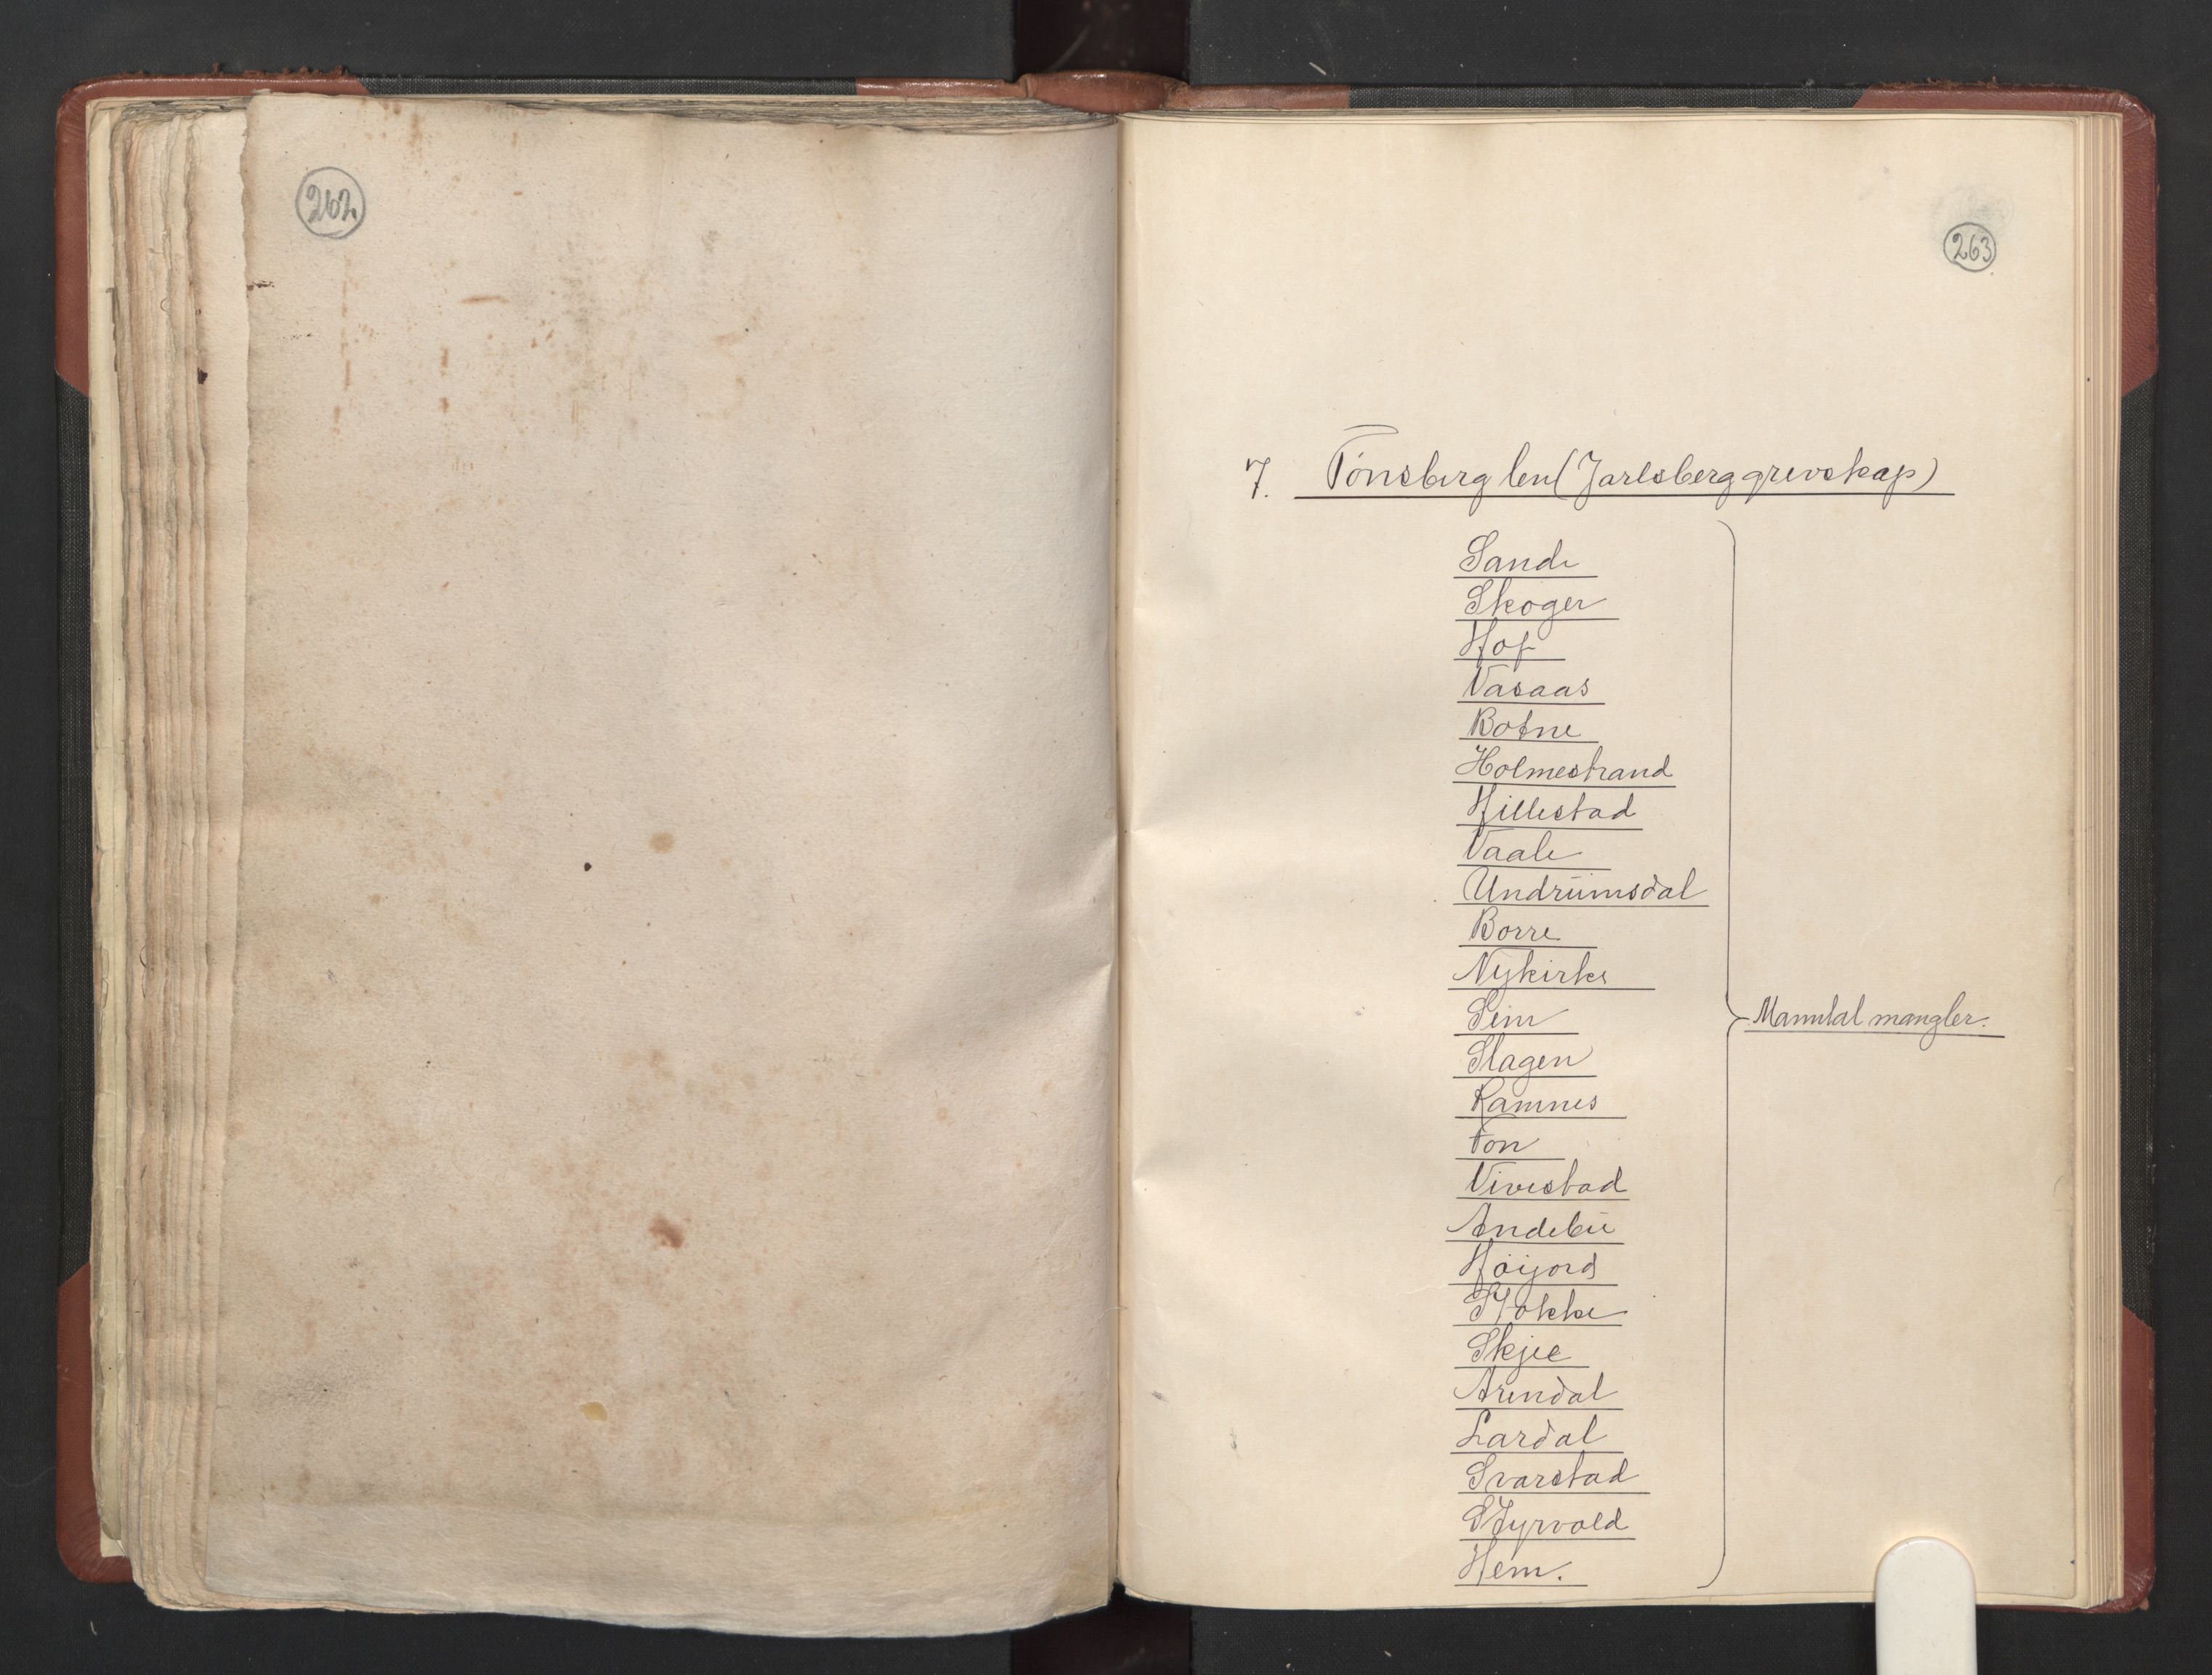 262
263
7. Tønsberg len (Jarlsberg grevskap)
Sande
Skoger
Hof
Vasaas
Botne
Holmestrand
Hillestad
Vaale
Undrumsdal
Borre
Nykirke
Sem
Slagen
Ramnes
Fon
Vivestad
Andebu
Høijord
Stokke
Skjee
Arendal
Lardal
Svarstad
Styrvold
Hem.
Manntal mangler.